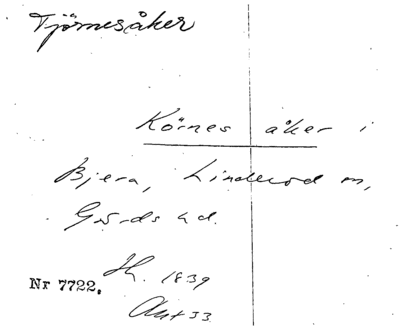 Tjörnesåker
Körnes åker i
Bjera, Linderod m,
Gärds hd.
Nr 7722.
1839
Akt 33